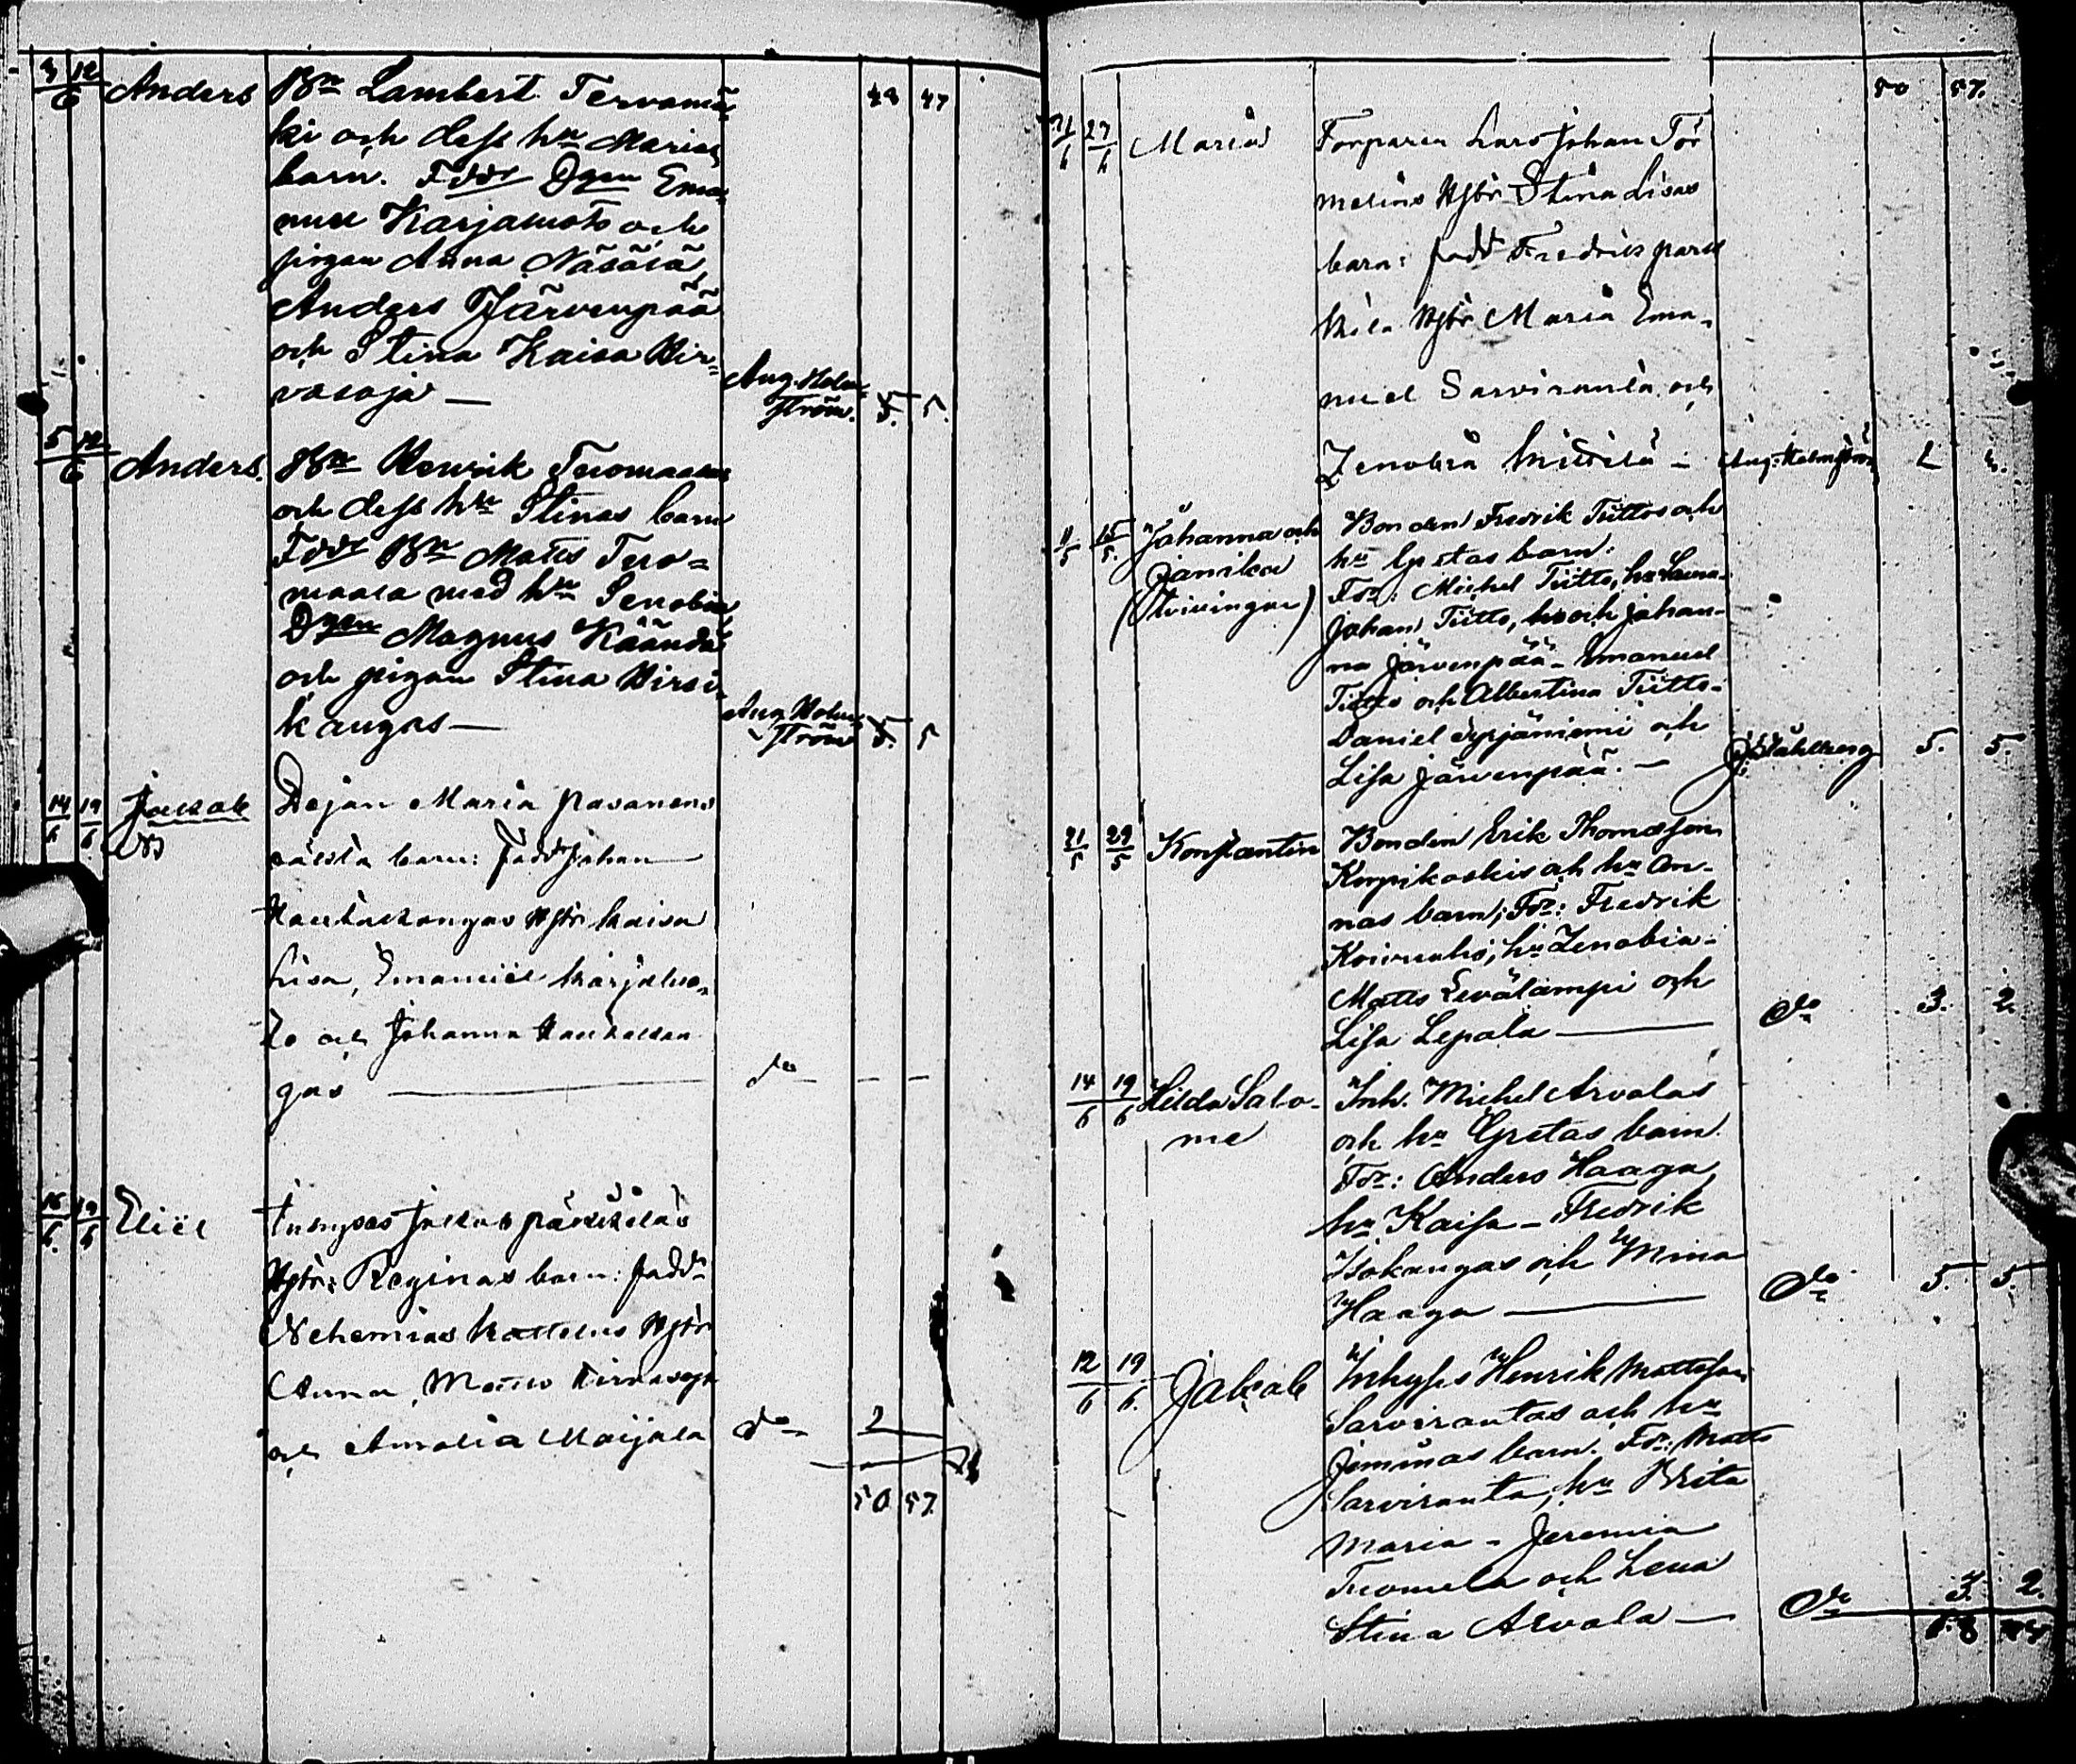 43 47
3/6 12 Anders Bn Lambert Tervomä-
ki och dess hu Marias
barn. Fddr Dgen Ema-
nuel Karjaluoto och
pigan Anna Näsälä,
Anders Järvenpää
och Stina Kaisa Hir-
vasoja — Aug. Holm-
ström. 5. 5.
5/6 12 Anders. Bn Henrik Tuomaalas
och dess hu Stinas barn
Fddr Bn Matts Tuo-
maala med hu Senobia,
Dgen Magnus Käändä
och pigan Stina Hirsi-
kangas — Aug. Holm-
ström 5. 5
14/6 19/6 Jakob Dejan Maria Pavanens
oäkta barn: fadd Johan
Haukakangas Hstr Kaisa
Lisa, Emanuel Karjaluo-
to och Johanna Haukakan
gas — do — —
16/6 19/6 Eliel Inhyses Jakob
Hstr: Reginas barn: fadd:
Nehemias Hstr
Anna, Matts Hirvasoja
och Amalia Maijala do 2
50 57
50 57.
21/6 27/6 Maria Torparen Lars Johan Tör
melins Hstr Stina Lisas
barn: fadd Fredrik Park
kila Hstr Maria Ema-
nuel Sarviranta och
Zenobia Mikkilä — Aug: Holmström 2
11/5 15/5. Johanna och Bonden Fredrik Tiittos och
Janika hu Gretas barn:
(Tvillingar) Fdr: Michel Tiitto, hu
Johan Tiitto, hu och Johan-
na Järvenpää – Emanuel
Tiitto och Albertina Tiitto –
Daniel Syrjäniemi och
Lisa Järvenpää. — J. Ståhlberg 5. 5.
21/5 29/5 Konstantin Bonden Erik Thomasson
Korpikoskis och hu An-
nas barn; Fdr: Fredrik
hu Zenobia –
Matts Levälampi och
Lisa Lepola — do 3. 2.
14/6 19/6 Hilda Salo- Inh. Michel Arvolas
me och hu Gretas barn.
Fdr: Anders Haaga,
hu Kaisa – Fredrik
Isokangas och Mina
Haaga — do 5. 5.
12/6 19/6. Jakob Inhyses Henrik Mattsson
Sarvirantas och hu
Jeminas barn. Fdr: Matts
Sarviranta, hu Brita
Maria – Jeremia
Tuomela och Lena
Stina Arvola — do 3. 2.